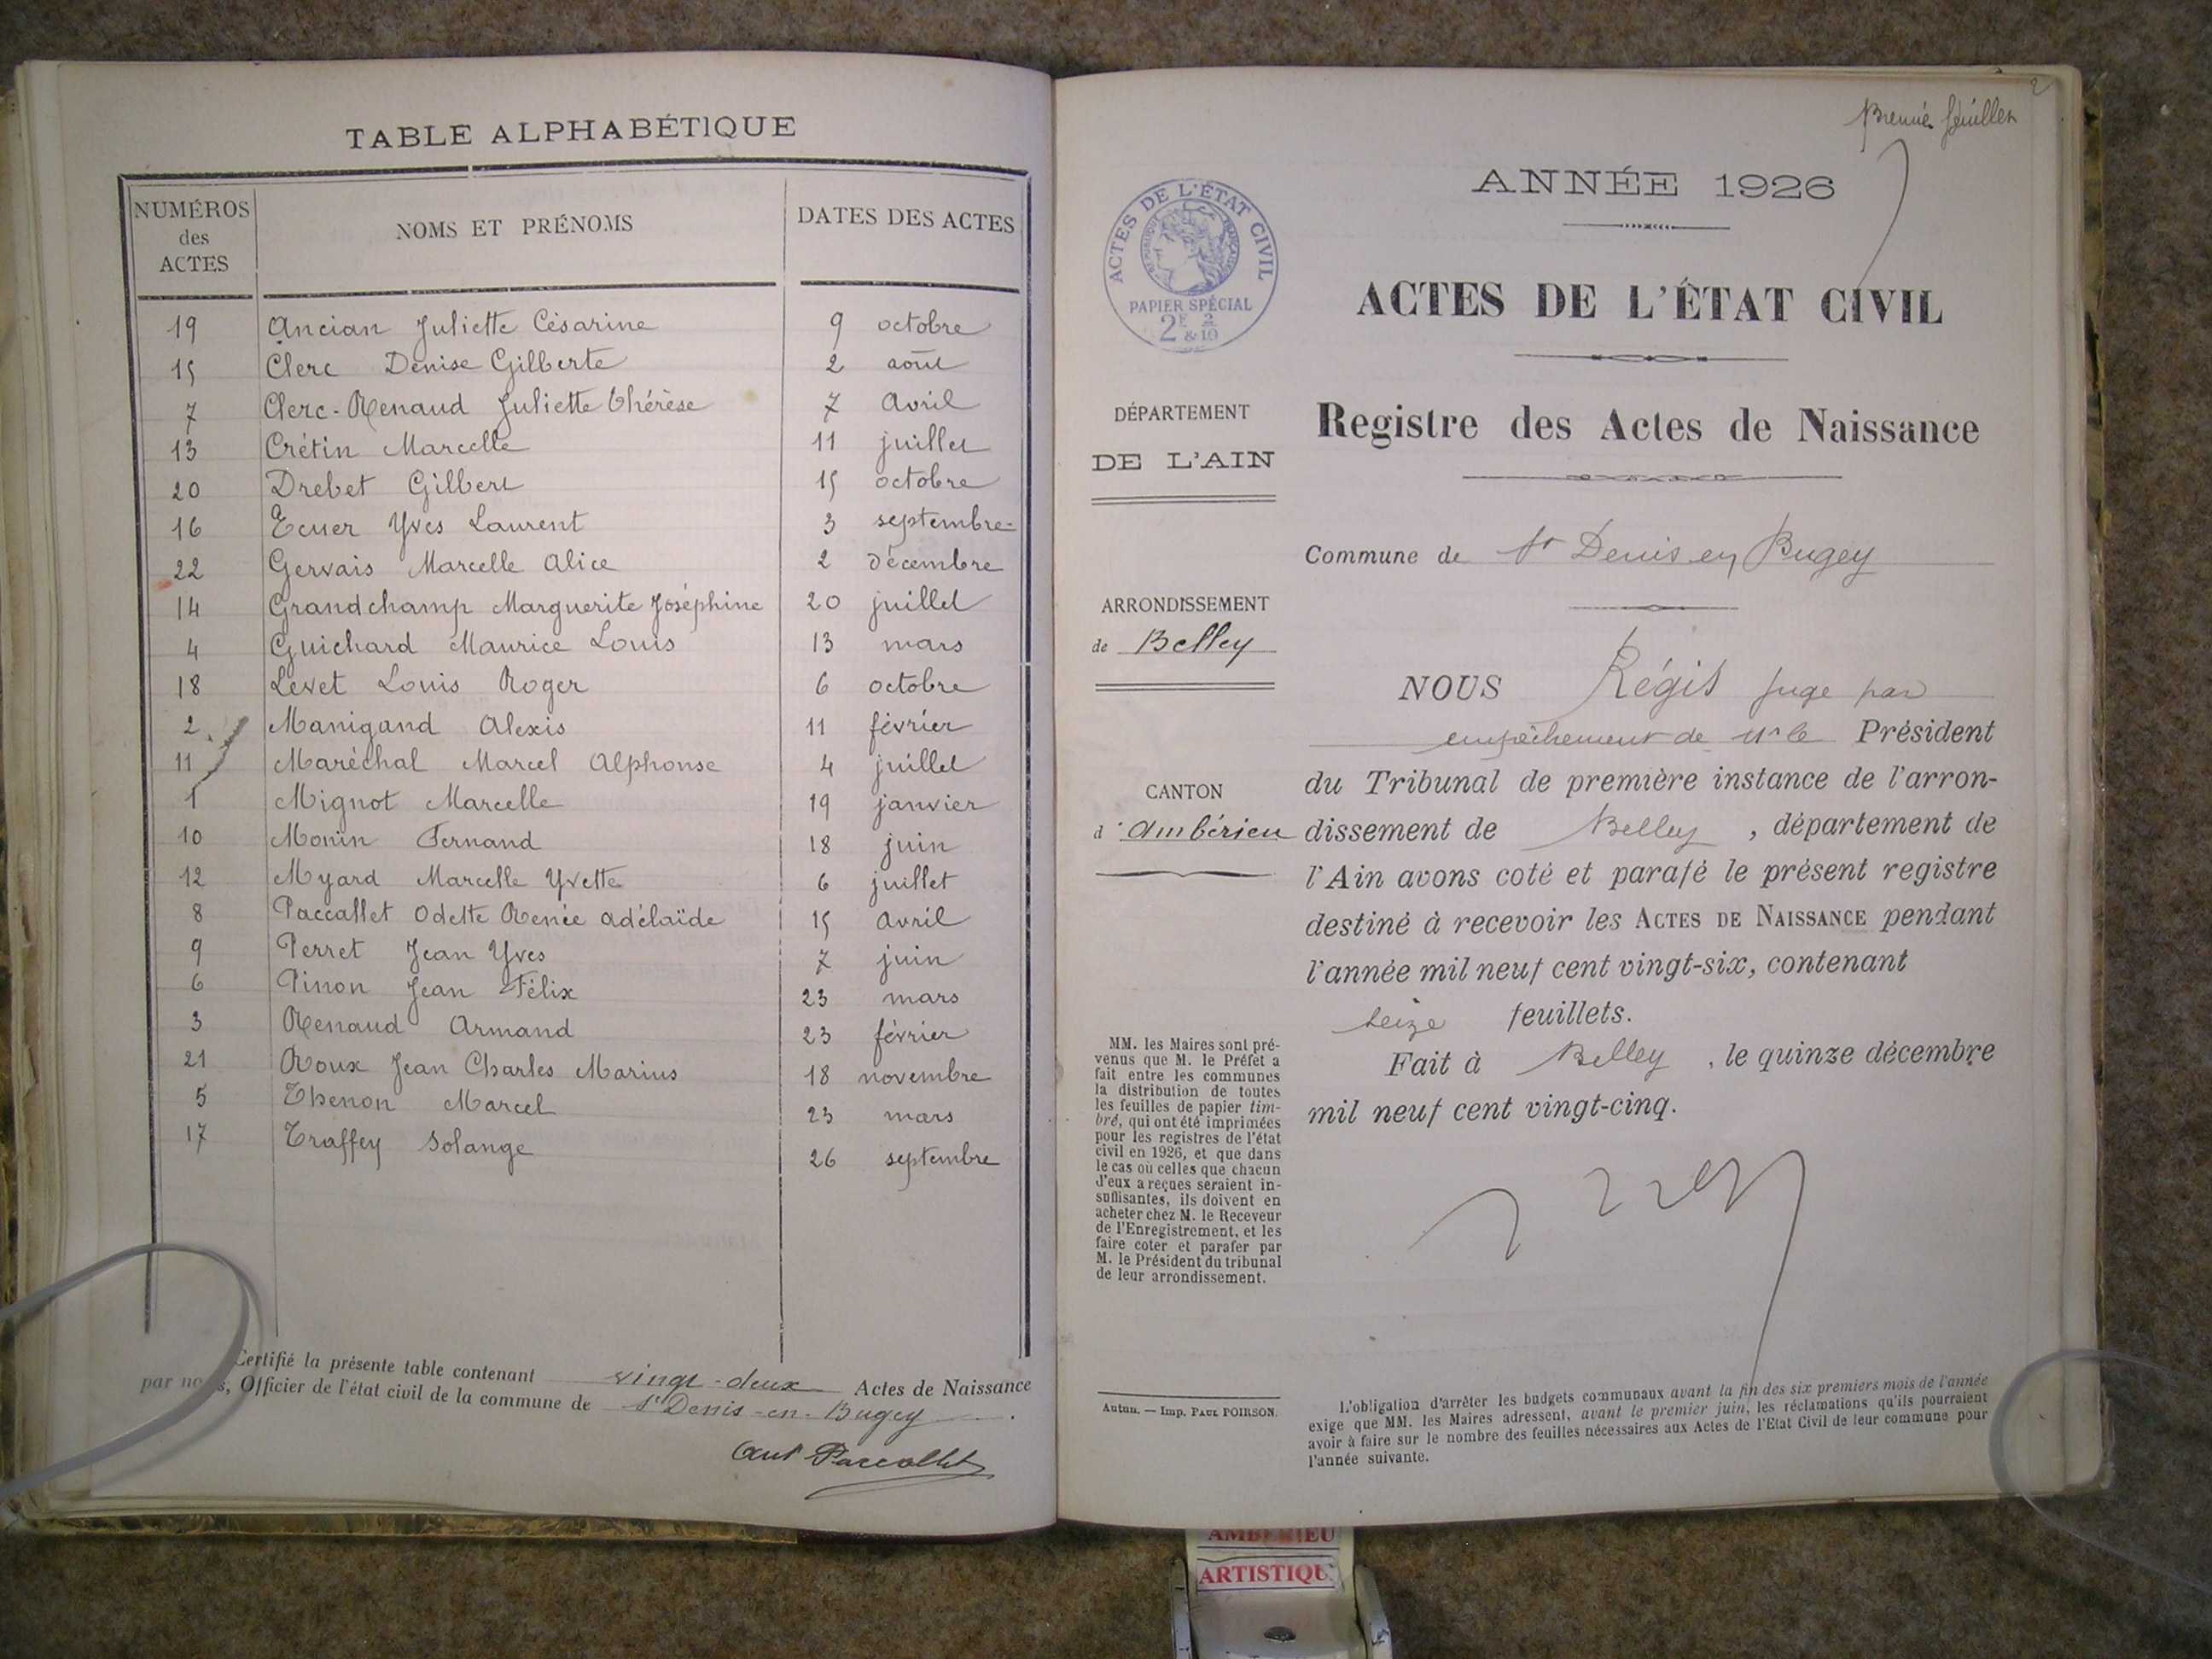 TABLE ALPHABÉTIQUE
NUMÉROS des ACTES NOMS ET PRÉNOMS DATES DES ACTES
19 Ancian Juliette Césarine 9 octobre
15 Clerc Denise Gilberte 2 août
7 Clerc-Renaud Juliette Thérèse 7 Avril
13 Crétin Marcelle 11 juillet
20 Drebet Gilbert 15 octobre
16 Ecuer Yves Laurent 3 septembre
22 Gervais Marcelle Alice 2 décembre
14 Grandchamp Marguerite Joséphine 20 juillet
4 Guichard Maurice Louis 13 mars
18 Levet Louis Roger 6 octobre
2 Manigand Alexis 11 février
11 Maréchal Marcel Alphonse 4 juillet
1 Mignot Marcelle 19 janvier
10 Monin Fernand 18 juin
12 Myard Marcelle Yvette 6 juillet
8 Paccallet Odette Renée Adélaïde 15 Avril
9 Perret Jean Yves 7 juin
6 Pinon Jean Félix 23 mars
3 Renaud Armand 23 février
21 Roux Jean Charles Marius 18 novembre
5 Thenon Marcel 23 mars
17 Traffey Solange 26 septembre
Certifié la présente table contenant vingt-deux Actes de Naissance
par nous, Officier de l'état civil de la commune de St Denis-en-Bugey.
Ant Paccallet
2
Premier feuillet
ANNÉE 1926
ACTES DE L'ÉTAT CIVIL
RÉPUBLIQUE FRANÇAISE
PAPIER SPÉCIAL
2F 2
&10
ACTES DE L'ÉTAT CIVIL
Registre des Actes de Naissance
DÉPARTEMENT
DE L'AIN
Commune de St Denis en Bugey
ARRONDISSEMENT
de Belley
CANTON
d'Ambérieu
NOUS Régis juge par
empêchement de Mr le Président
du Tribunal de première instance de l'arron-
dissement de Belley, département de
l'Ain avons coté et parafé le présent registre
destiné à recevoir les ACTES DE NAISSANCE pendant
l'année mil neuf cent vingt-six, contenant
seize feuillets.
Fait à Belley, le quinze décembre
mil neuf cent vingt-cinq.
MM. les Maires sont pré-
venus que M. le Préfet a
fait entre les communes
la distribution de toutes
les feuilles de papier tim-
bré, qui ont été imprimées
pour les registres de l'état
civil en 1926, et que dans
le cas où celles que chacun
d'eux a reçues seraient in-
suffisantes, ils doivent en
acheter chez M. le Receveur
de l'Enregistrement, et les
faire coter et parafer par
M. le Président du tribunal
de leur arrondissement.
Autun. — Imp. PAUL POIRSON.
L'obligation d'arrêter les budgets communaux avant la fin des six premiers mois de l'année
exige que MM. les Maires adressent, avant le premier juin, les réclamations qu'ils pourraient
avoir à faire sur le nombre des feuilles nécessaires aux Actes de l'Etat Civil de leur commune pour
l'année suivante.
AMBERIEU
ARTISTIQU